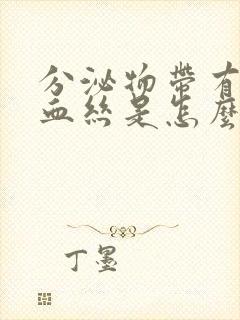 分泌物帶有
血絲是怎麼
丁墨